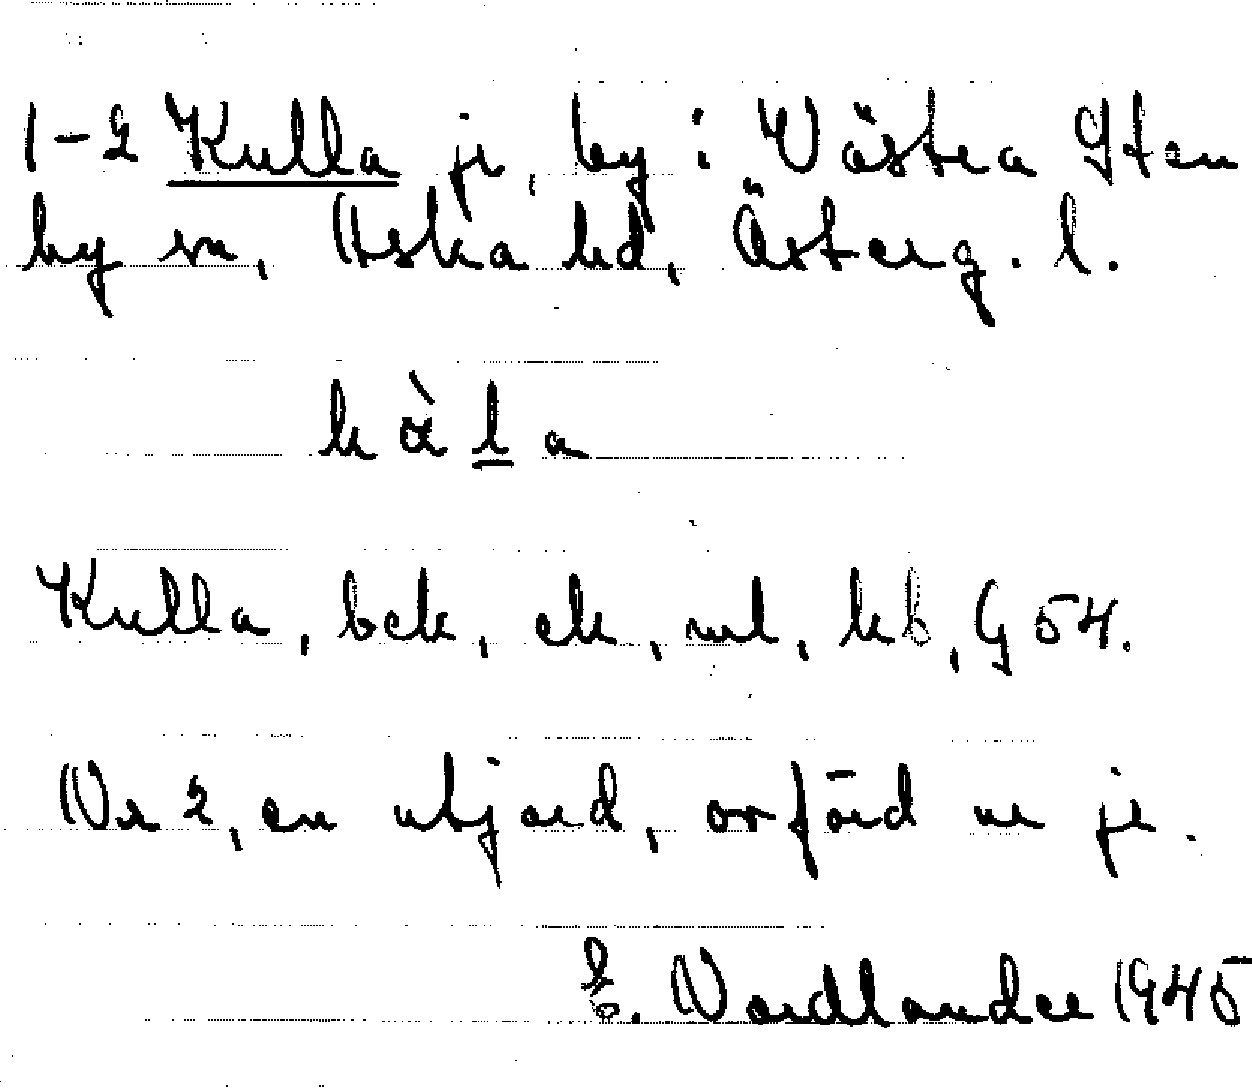 1-2 Kulla jr, by i Västra Sten
by sn, Aska hd, Österg. l.
kὰla
Kulla, bek, ek, ml, kb, G 54.
Nr 2, en utjord, avförd ur jr.
E. Nordlander 1945